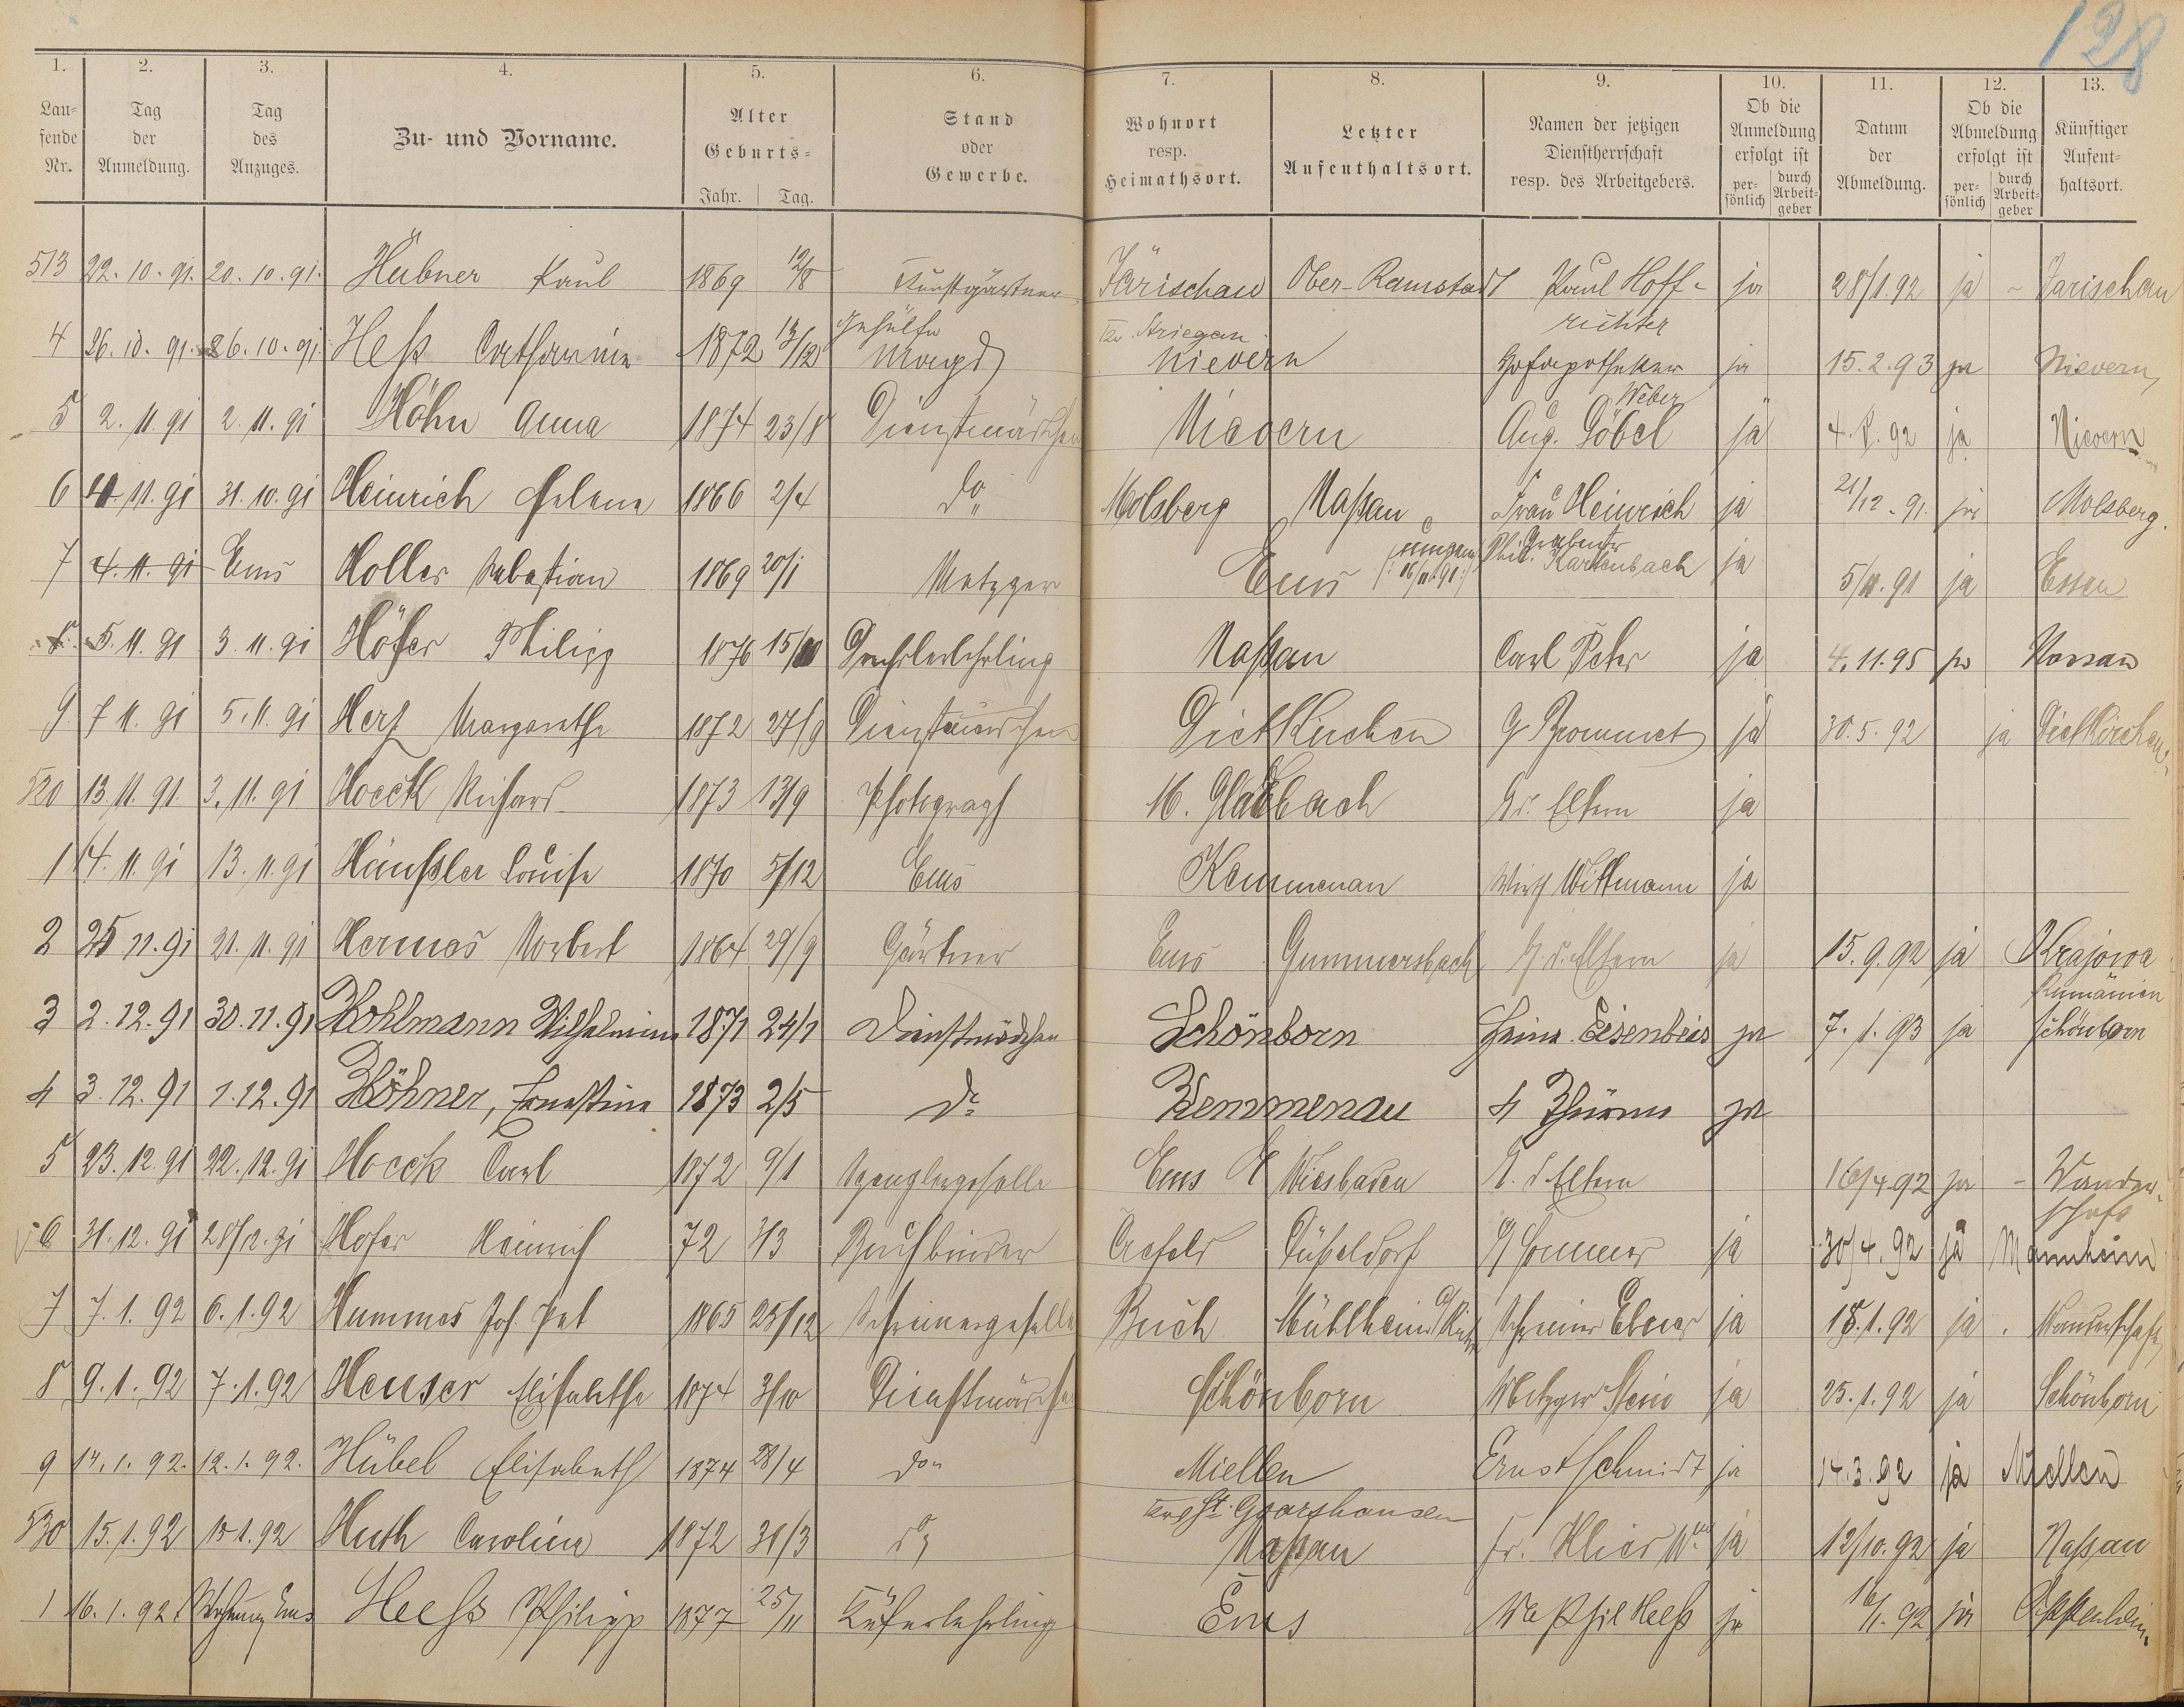 128
1. 2. 3. 4. 5. 6. 7. 8. 9. 10. 11. 12. 13.
Laufende Nr. Tag der Anmeldung. Tag des Anzuges. Zu- und Vorname. Alter Geburts- Jahr. Tag. Stand oder Gewerbe. Wohnort resp. Heimathsort. Letzter Aufenthaltsort. Namen der jetzigen Dienstherrschaft resp. des Arbeitgebers. Ob die Anmeldung erfolgt ist persönlich durch Arbeitgeber Datum der Abmeldung. Ob die Abmeldung erfolgt ist persönlich durch Arbeitgeber Künftiger Aufenthaltsort.
513 22.10.91. 20.10.91. Hübner Paul 1869 12/8 Kunstgärtner Järischau Ober-Ramstadt Paul Hoff- ja 28/1.92 ja - Jarischau
Gehülfe Kr. Striegau richter
4 26.10.91. 26.10.91. Heß Catharina 1872 13/12 Magd Nievern Hofapotheker ja 15.2.93 ja Nievern
Weber
5 2.11.91 2.11.91 Höhn Anna 1874 23/8 Dienstmädchen Nievern Aug. Göbel ja 4.8.92 ja Nievern
6 4.11.91 31.10.91 Heinrich Helene 1866 2/4 do Molsberg Naßau Frau Heinrich ja 21/12.91. ja Molsberg.
Grabenstr
7 4.11.91 Ems Holler Sebastian 1869 20/1 Metzger Ems (: 16/11.91:) Phil. Karkenbach ja 5/11.91 ja Essen
8. 5.11.91 3.11.91 Höfer Philipp 1876 15/10 Drechslerlehrling Naßau Carl Peter ja 4.11.95 ja Nassau
9 7.11.91 5.11.91 Herz Margarethe 1872 27/9 Dienstmädchen Dietkirchen G Brommet ja 30.5.92 ja Dietkirchen
520 13.11.91. 3.11.91 Hoeck Richard 1873 13/9 Photograph M. Gladbach Br. Eltern ja
1 14.11.91 13.11.91 Häußler Louise 1870 5/12 Ems Kemmenau Wirth Wittmann ja
2 25.11.91 21.11.91 Hermes Norbert 1864 29/9 Gärtner Ems Gummersbach b. d. Eltern ja 15.9.92 ja Krajowa
Rumänien
3 2.12.91 30.11.91 Hohlmann Wilhelmine 1871 24/1 Dienstmädchen Schönborn Heinr. Eisenbeis ja 7.1.93 ja Schönborn
4 3.12.91 1.12.91 Höhner, Ernestine 1873 2/5 do Kemmenau H Thurm ja
5 23.12.91 22.12.91 Hoeck Carl 1872 9/1 Spenglergeselle Ems Wiesbaden b. d. Eltern 16/4.92 ja - Wander-
schaft
6 31.12.91 28/12.91 Hofer Heinrich 72 3/3 Buchbinder Crefeld Düßeldorf Sommer ja 30/4.92 ja Mannheim
7 7.1.92 6.1.92 Hummes Joh. Pet 1865 25/12 Schreinergeselle Buch Mühlheim a/ Ruhr Schreiner Ebner ja 18.1.92 ja . Wanderschaft
8 9.1.92 7.1.92 Heuser Elisabethe 1874 3/10 Dienstmädchen Schönborn Metzger Stein ja 25.1.92 ja Schönborn
9 14.1.92. 12.1.92. Hübel Elisabeth 1874 28/4 do Miellen Ernst Schmidt ja 14.3.92 ja Miellen
Kr. St. Goarshausen
530 15.1.92 15.1.92 Huth Carolina 1872 31/3 do Naßau Fr. Klier We ja 12/10.92 ja Naßau
1 16.1.92 Wohnung Ems Heeß Philipp 1877 25/11 Küferlehrling Ems We Phil Heeß ja 16/1.92 ja